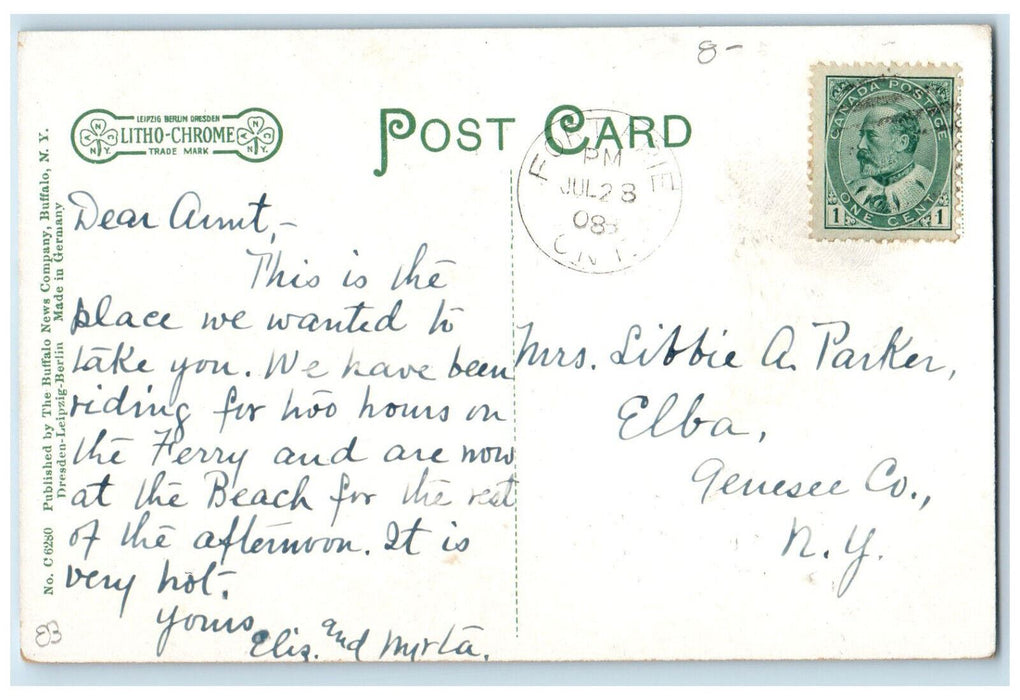 8-
LEIPZIG BERLIN DRESDEN
LITHO-CHROME
TRADE MARK
A N C N.Y.
A N C N.Y.
POST CARD
FORT ERIE
PM
JUL 28
08
ONT.
CANADA POSTAGE
1 ONE CENT 1
No. C 6280 Published by The Buffalo News Company, Buffalo, N. Y.
Dresden-Leipzig-Berlin Made in Germany
Dear Aunt,-
This is the
place we wanted to
take you. We have been
riding for two hours on
the Ferry and are now
at the Beach for the rest
of the afternoon. It is
very hot.
Yours,
Eliz. and Myrta.
Mrs. Libbie A. Parker,
Elba,
Genesee Co.,
N.Y.